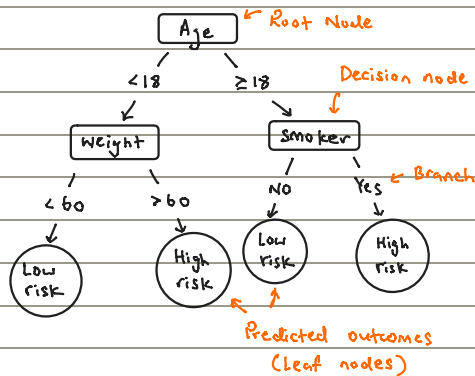 Age
Root Node
<18
≥18
Decision node
Weight
Smoker
<60
>60
NO
Yes
Branch
Low
risk
High
risk
Low
risk
High
risk
Predicted outcomes
(Leaf nodes)